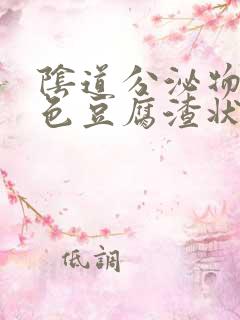 陰道分泌物
色豆腐渣狀
低調